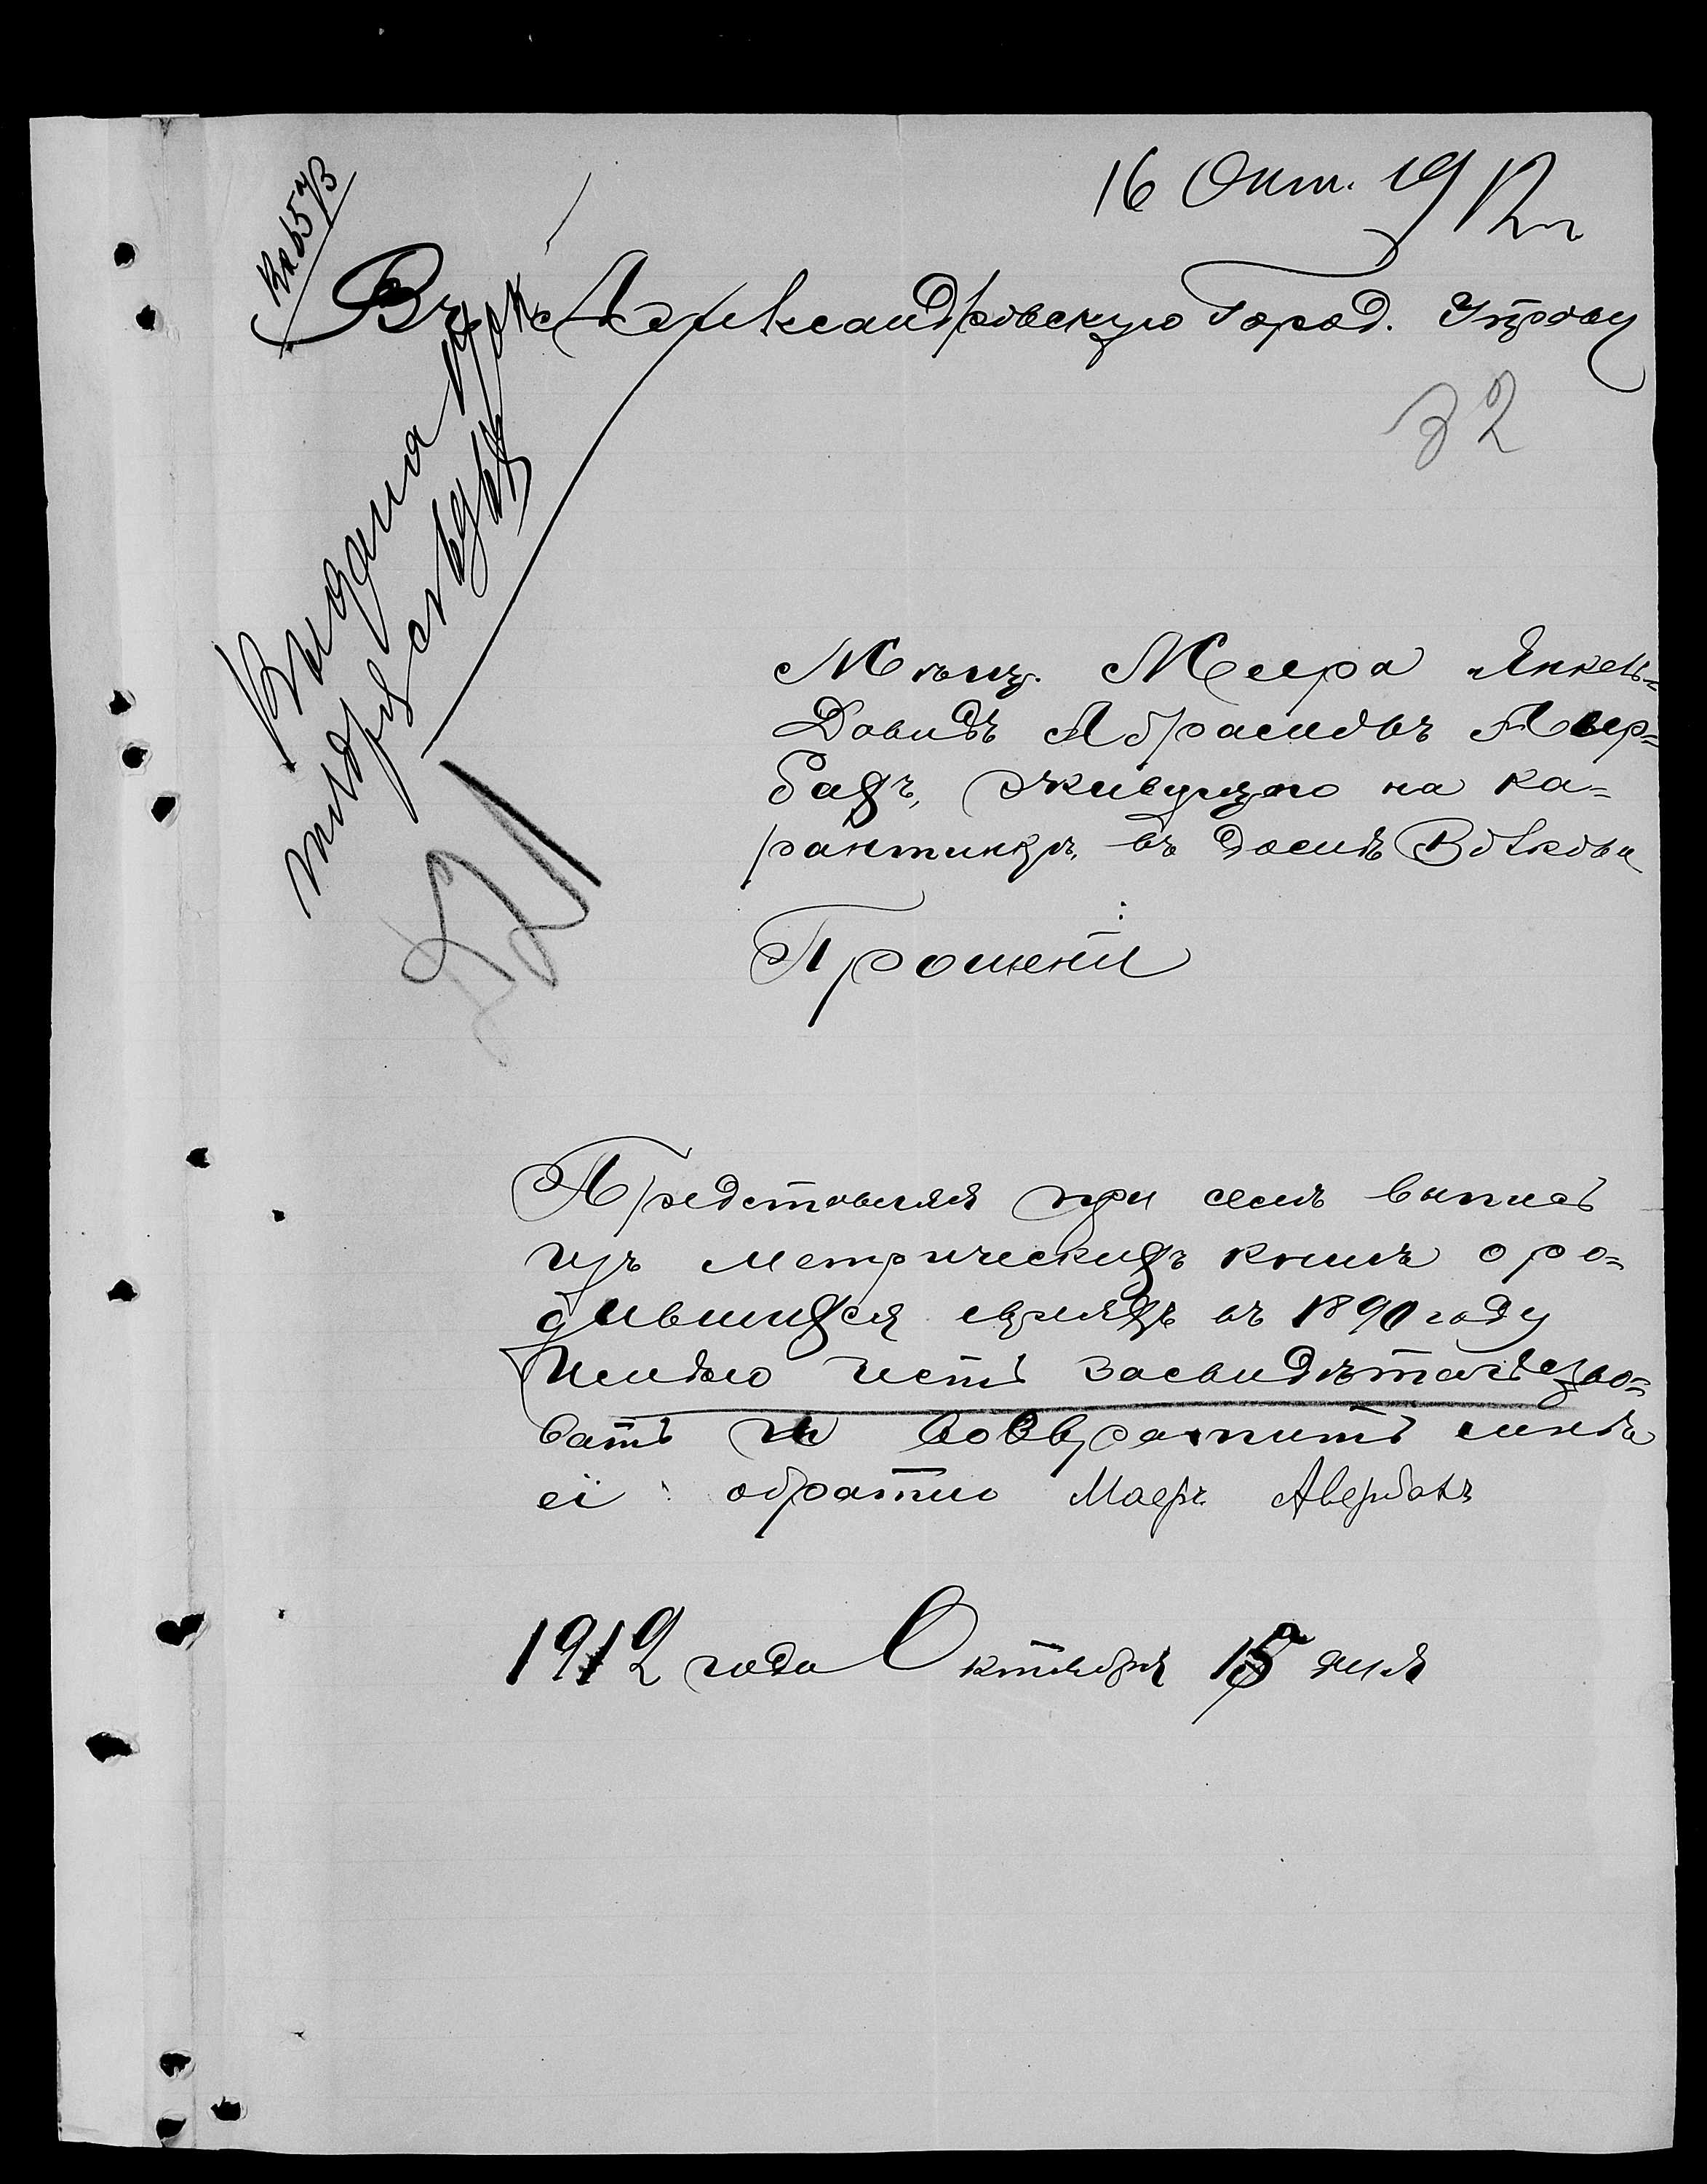 16 Окт. 1912 г
Вх 6573
Въ Александровскую Город. Управу
32
Мѣщ. Меера Янкель-
Давидъ Абрамовъ Авер-
бахъ, живущаго на ка-
рантинкѣ, въ домѣ Волкова
Прошеніе
Представляя при семъ выпись
изъ метрическихъ книгъ о ро-
дившихся евреяхъ въ 1890 году
Имѣю честь засвидѣтельство-
вать и возвратить мнѣ
её обратно Маеръ Авербахъ
1912 года Октября 15 дня